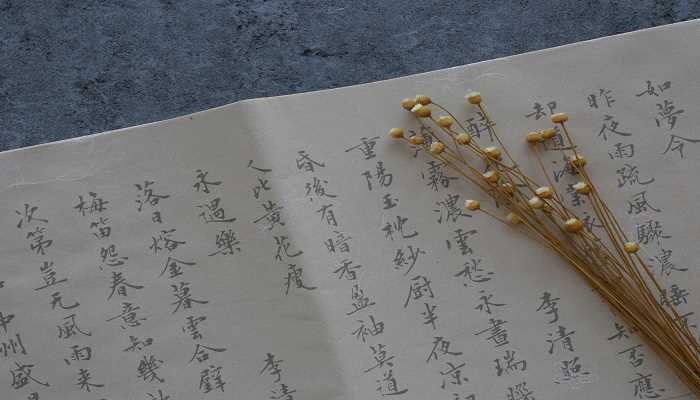 如夢令
昨夜雨疏風驟濃睡
却道海棠 知否應
醉 李清照
薄霧濃雲愁永晝瑞腦
重陽玉枕紗厨半夜凉初
昏後有暗香盈袖莫道
人比黃花瘦 李清
永遇樂
落日熔金暮雲合璧
梅笛怨春意知幾
次第豈无風雨來
中州盛